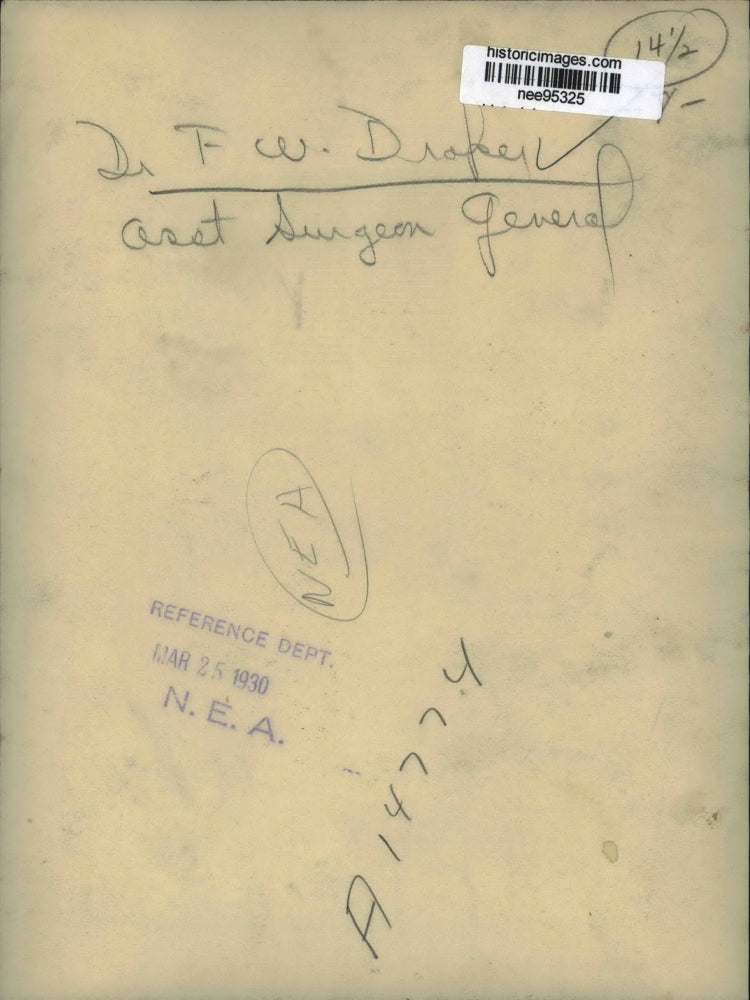 14 1/2
historicimages.com
nee95325
Dr F W. Draper
asst Surgeon General
NEA
REFERENCE DEPT.
MAR 25 1930
N. E. A.
A 14774